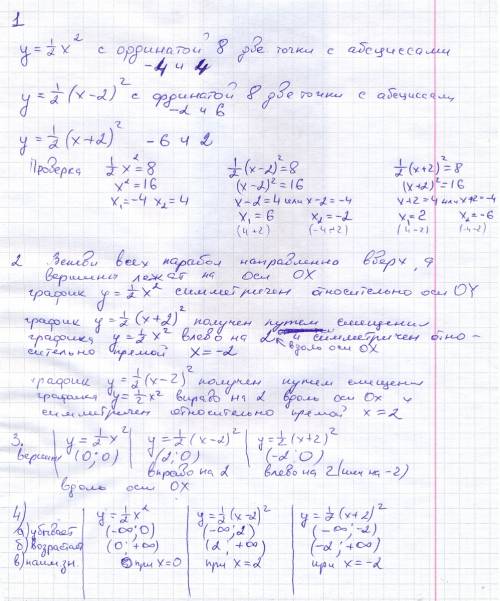 1
y = 1/2 x² с ординатой 8 две точки с абсциссами
-4 и 4
y = 1/2 (x-2)² с ординатой 8 две точки с абсциссам,
-2 и 6
y = 1/2 (x+2)² -6 и 2
Проверка 1/2 x² = 8 1/2 (x-2)² = 8 1/2 (x+2)² = 8
x² = 16 (x-2)² = 16 (x+2)² = 16
x₁ = -4 x₂ = 4 x-2 = 4 или x-2 = -4 x+2 = 4 или x+2 = -4
x₁ = 6 x₂ = -2 x₁ = 2 x₂ = -6
(4+2) (-4+2) (4-2) (-4-2)
2 Ветви всех парабол направленно вверх, а
вершины лежат на оси OX
график y = 1/2 x² симметричен относительно оси OY
график y = 1/2 (x+2)² получен путем смещения
графика y = 1/2 x² влево на 2 и симметричен отно-
вдоль оси OX
сительно прямой x = -2
график y = 1/2 (x-2)² получен путем смещения
графика y = 1/2 x² вправо на 2 вдоль оси Ox и
симметричен относительно прямой x = 2
3. | y = 1/2 x² | y = 1/2 (x-2)² | y = 1/2 (x+2)²
вершин (0; 0) | (2; 0) | (-2; 0)
вправо на 2 влево на 2 (или на -2)
вдоль оси OX
4) | y = 1/2 x² | y = 1/2 (x-2)² | y = 1/2 (x+2)²
а) убывает (-∞; 0) (-∞; 2) (-∞; -2)
б) возрастает (0; +∞) (2; +∞) (-2; +∞)
в) наим.зн. при x = 0 при x = 2 при x = -2